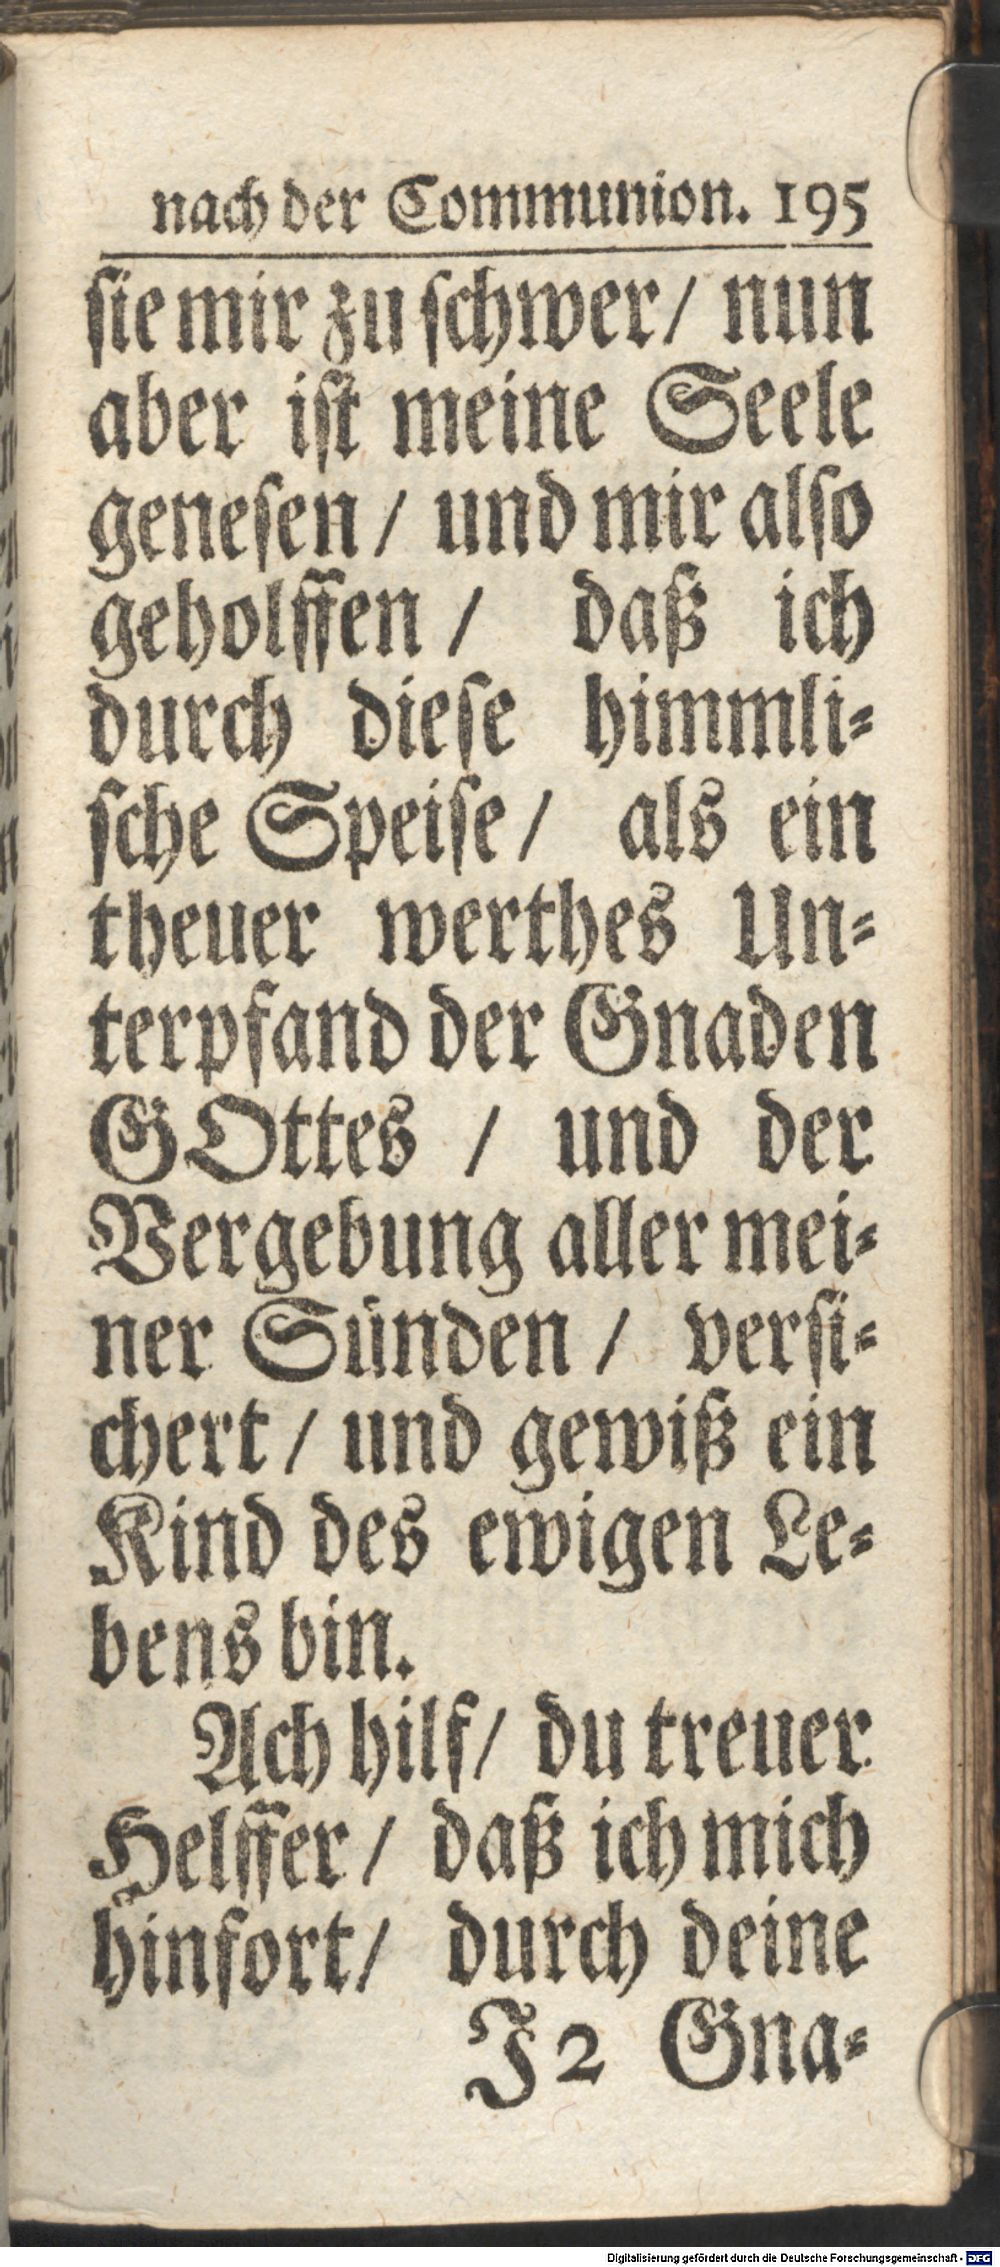 nach der Communion. 195
sie mir zu schwer / nun
aber ist meine Seele
genesen / und mir also
geholffen / daß ich
durch diese himmli-
sche Speise / als ein
theuer werthes Un-
terpfand der Gnaden
GOttes / und der
Vergebung aller mei-
ner Sünden / versi-
chert / und gewiß ein
Kind des ewigen Le-
bens bin.
Ach hilf / du treuer
Helffer / daß ich mich
hinfort / durch deine
J 2 Gna-
Digitalisierung gefördert durch die Deutsche Forschungsgemeinschaft - DFG